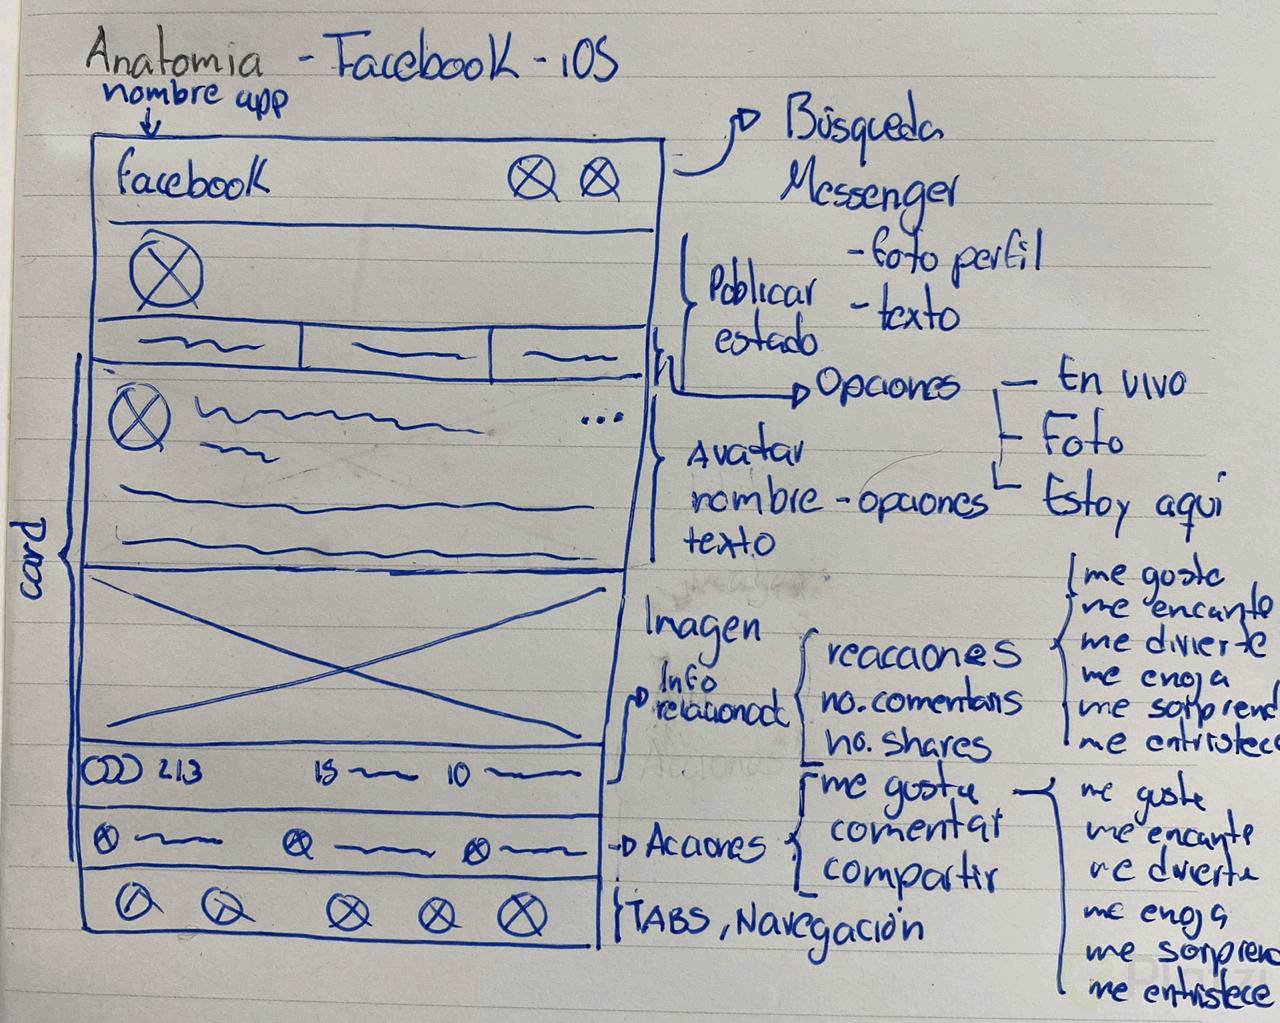 Anatomia - Facebook - iOS
nombre app
facebook
Búsqueda
Messenger
Publicar estado
- foto perfil
- texto
Opciones
- En vivo
- Foto
- Estoy aqui
...
Avatar
nombre - opciones
texto
card
Imagen
Info
relacionada
reacciones
no. comentarios
no. shares
me gusta
me encanta
me divierte
me enoja
me sorprend
me entristece
213 15 10
Acciones
me gusta
comentar
compartir
me gusta
me encanta
me divierte
me enoja
me sorprend
me entristece
TABS, Navegación